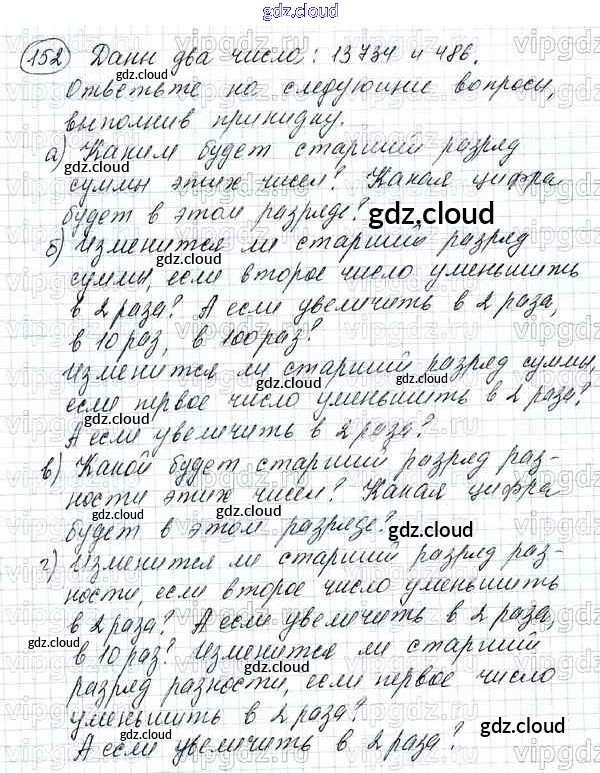 gdz.cloud
152 Даны два числа: 13734 и 486.
Ответьте на следующие вопросы,
выполнив прикидку.
а) Каким будет старший разряд
суммы этих чисел? Какая цифра
будет в этом разряде?
б) Изменится ли старший разряд
суммы, если второе число уменьшить
в 2 раза? А если увеличить в 2 раза,
в 10 раз, в 100 раз?
Изменится ли старший разряд суммы,
если первое число уменьшить в 2 раза?
А если увеличить в 2 раза?
в) Какой будет старший разряд раз-
ности этих чисел? Какая цифра
будет в этом разряде?
г) Изменится ли старший разряд раз-
ности, если второе число уменьшить
в 2 раза? А если увеличить в 2 раза,
в 10 раз? Изменится ли старший
разряд разности, если первое число
уменьшить в 2 раза?
А если увеличить в 2 раза?